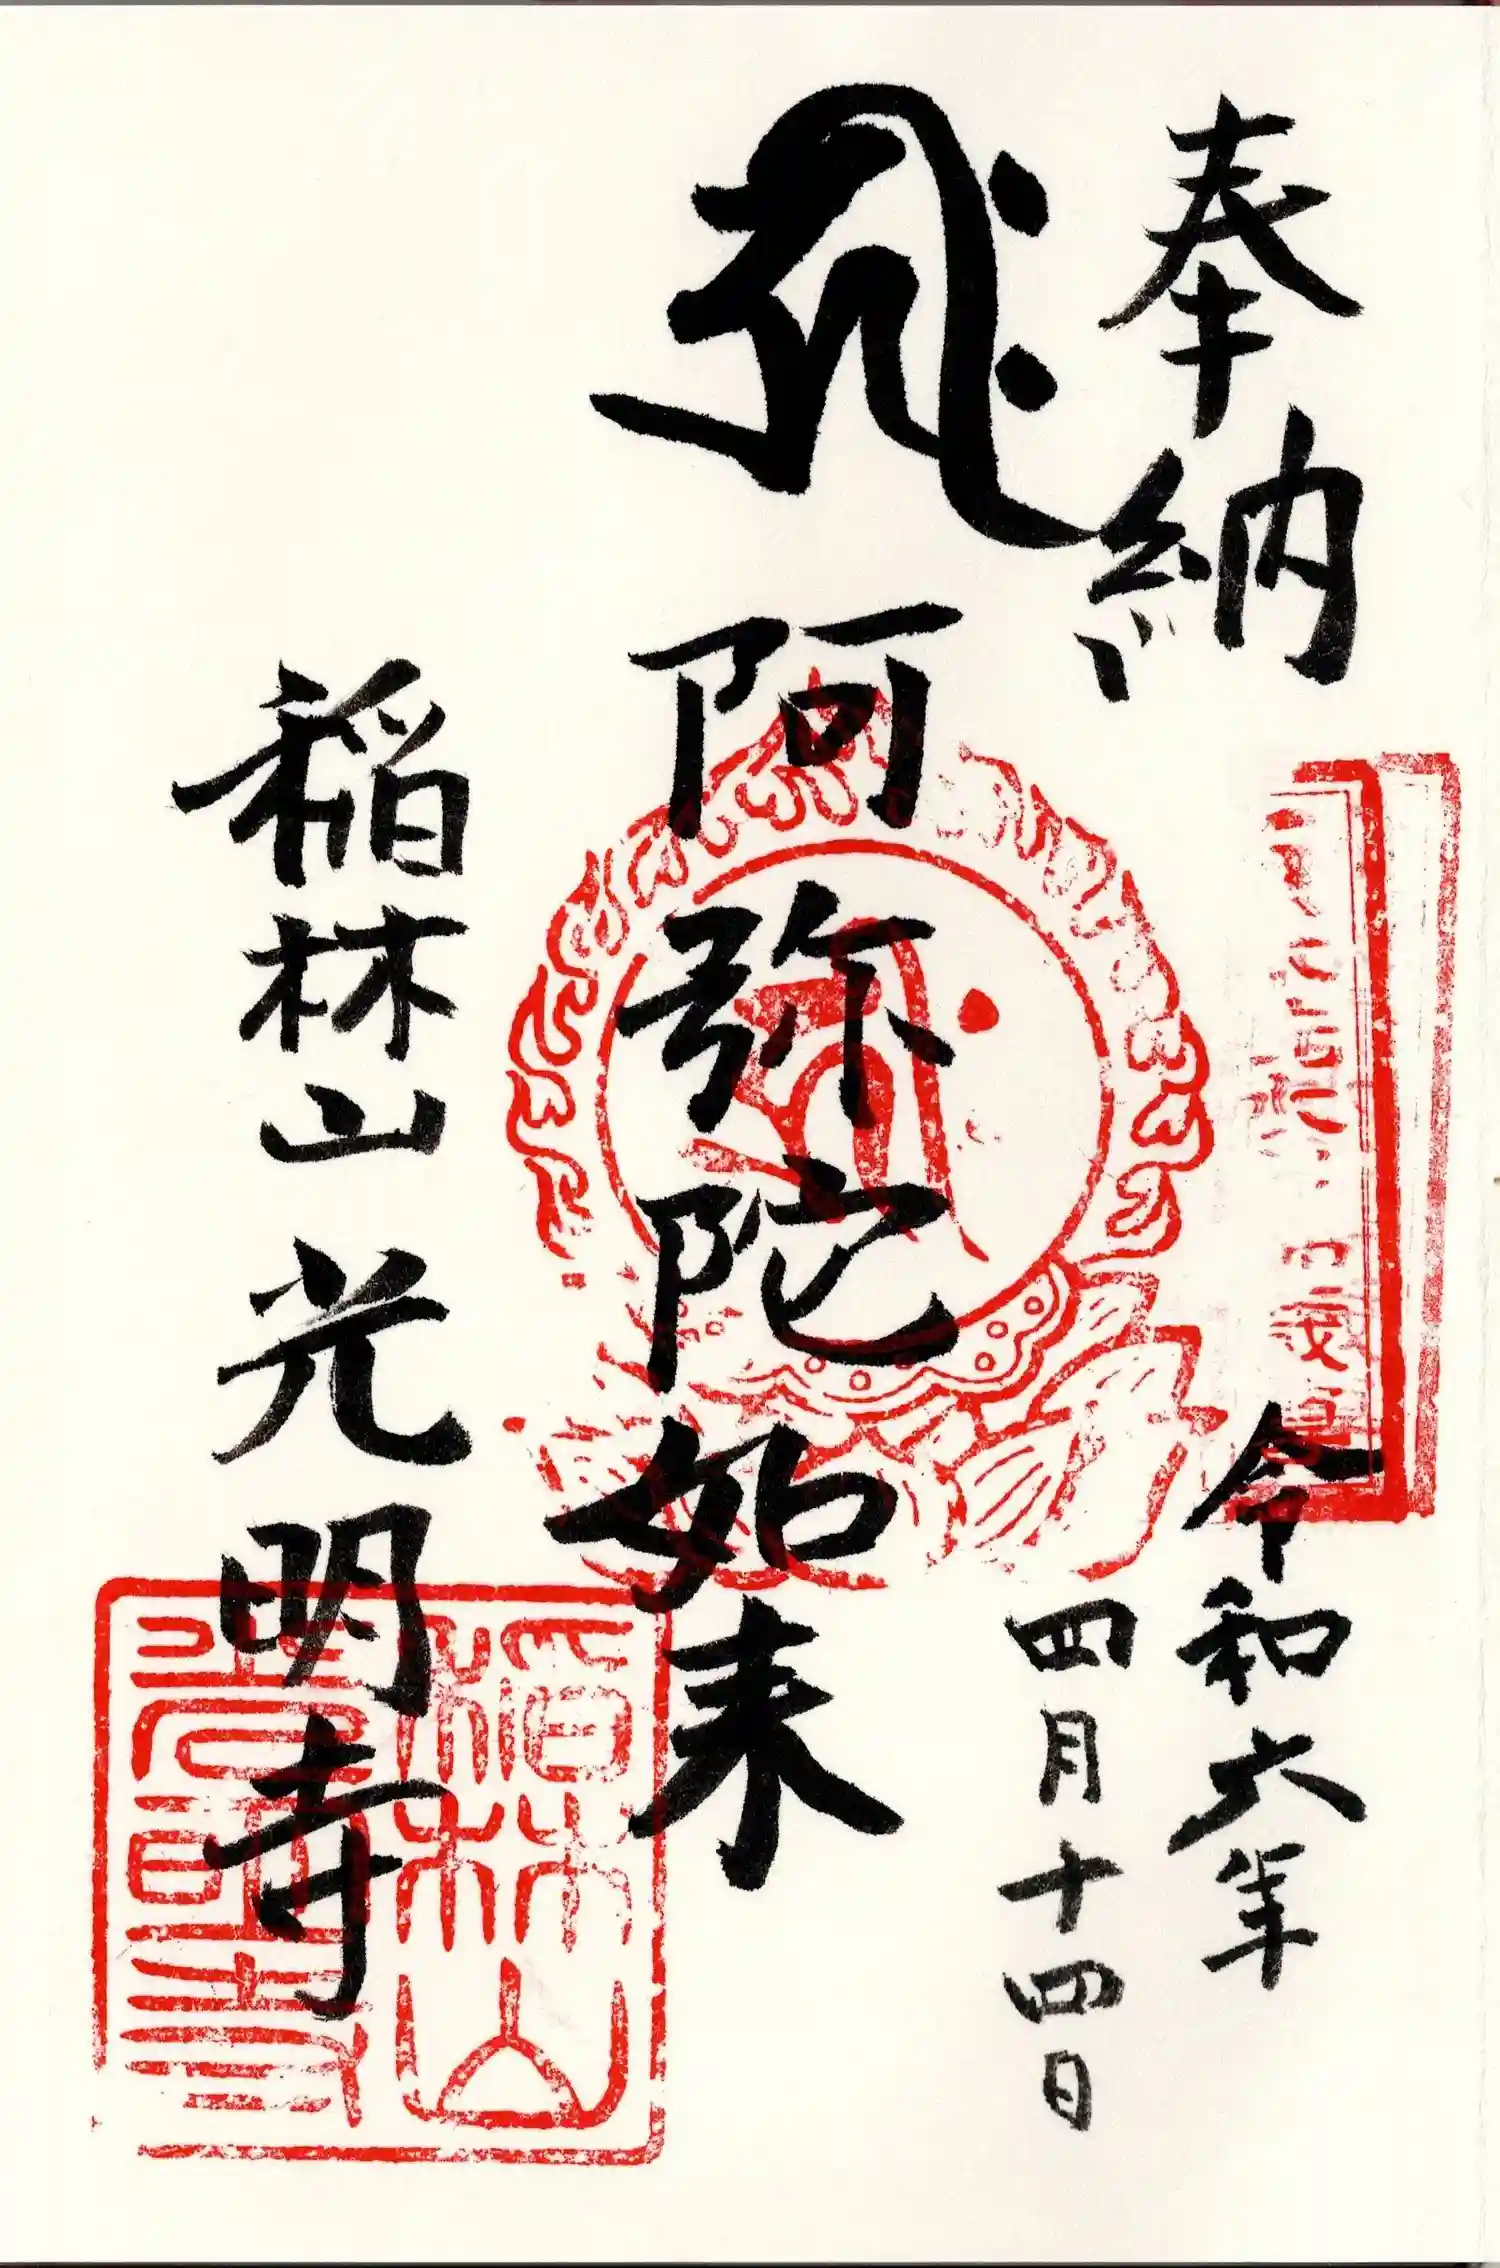 奉納
令和六年
四月十四日
ह्रीः
阿弥陀如来
稲林山 光明寺
稲林山
光明寺